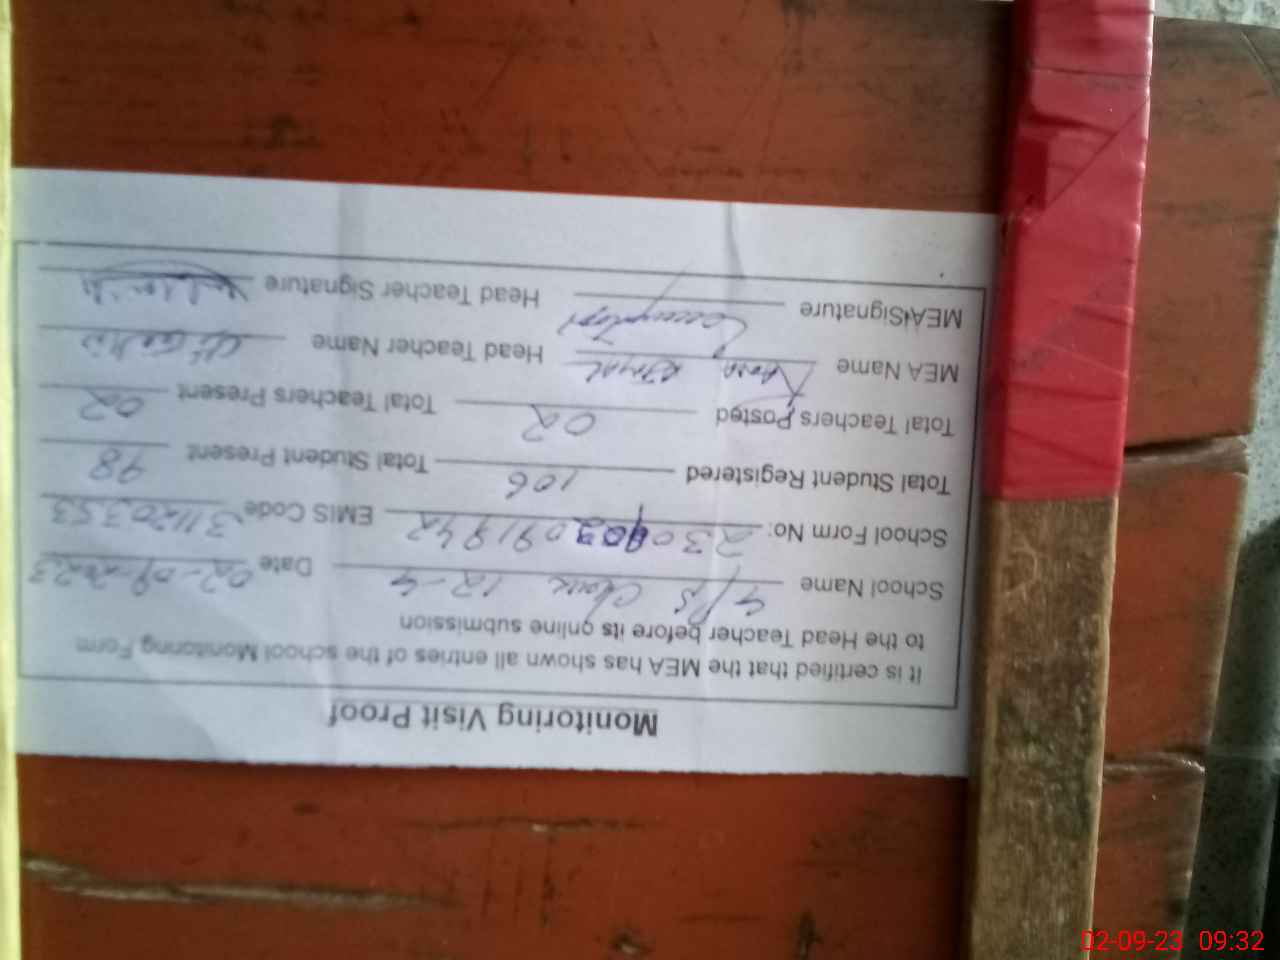 Monitoring Visit Proof
It is certified that the MEA has shown all entries of the school Monitoring Form
to the Head Teacher before its online submission
School Name G/PS Chak 12-G Date 02-09-2023
School Form No: EMIS Code 31120353
Total Student Registered 106 Total Student Present 98
Total Teachers Posted 02 Total Teachers Present 02
MEA Name Head Teacher Name
MEA Signature Head Teacher Signature
02-09-23 09:32